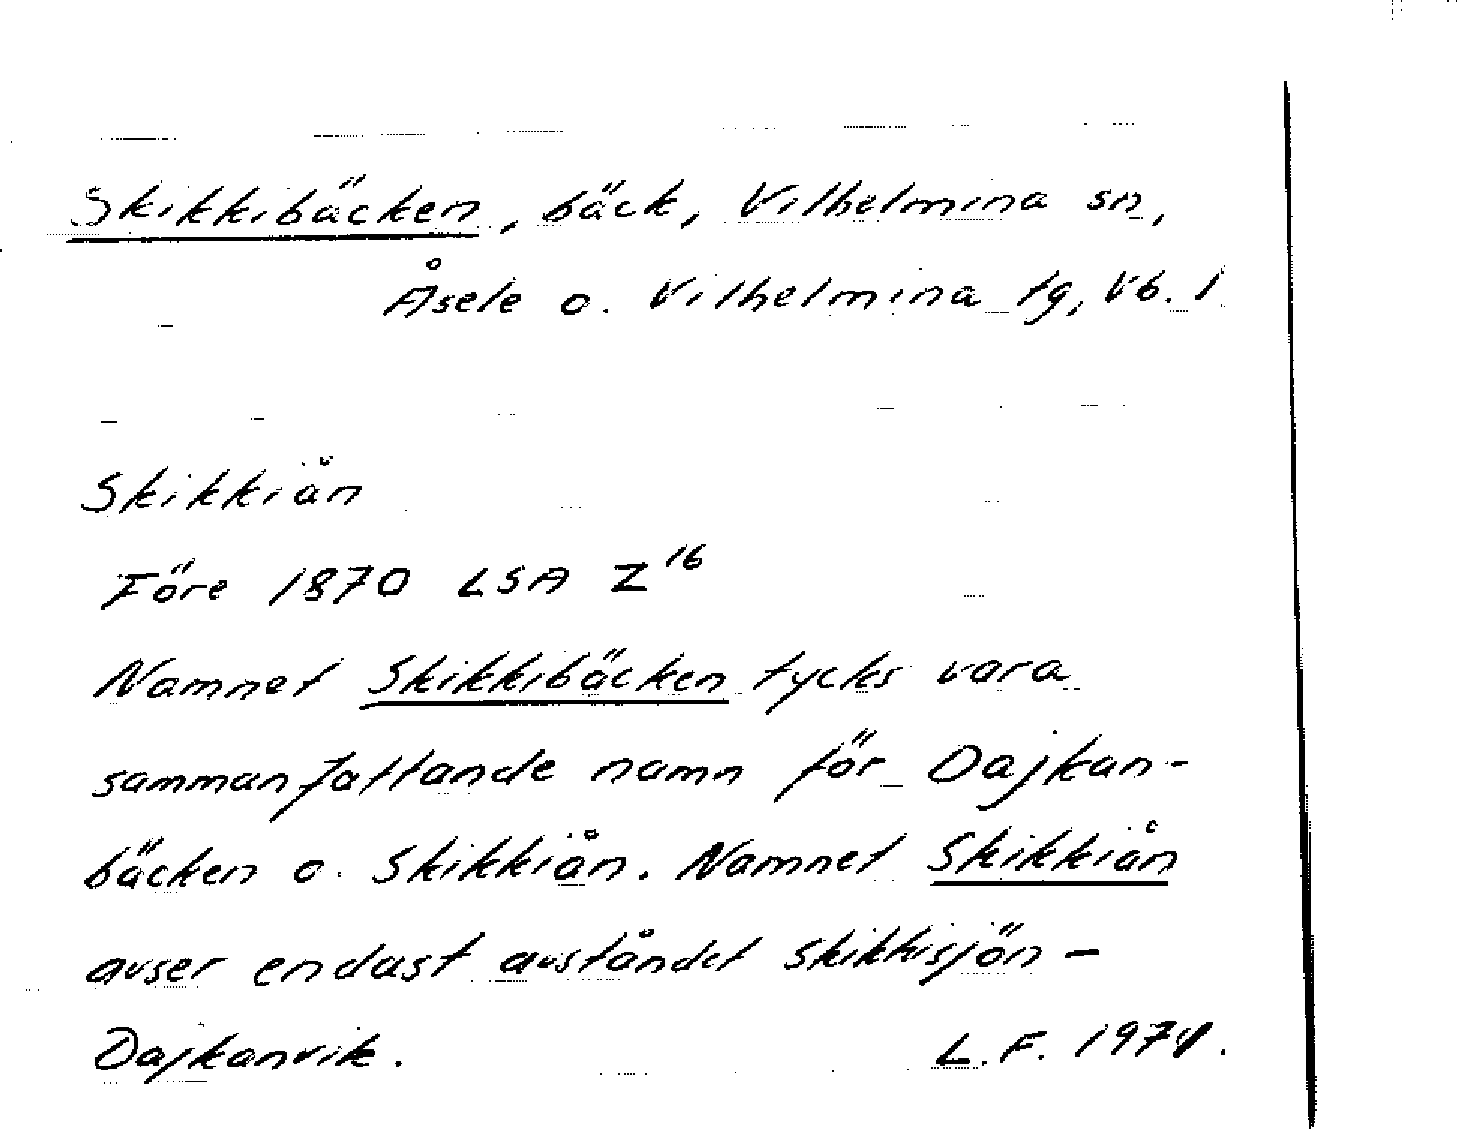 Skikkibäcken, bäck, Vilhelmina sn,
Åsele o. Vilhelmina tg, Vb. l
Skikkiån
Före 1870 LSA Z16
Namnet Skikkibäcken tycks vara
sammanfattande namn för Dajkan-
bäcken o. Skikkiån. Namnet Skikkiån
avser endast avståndet Skikkisjön -
Dajkanvik. L.F. 1974.